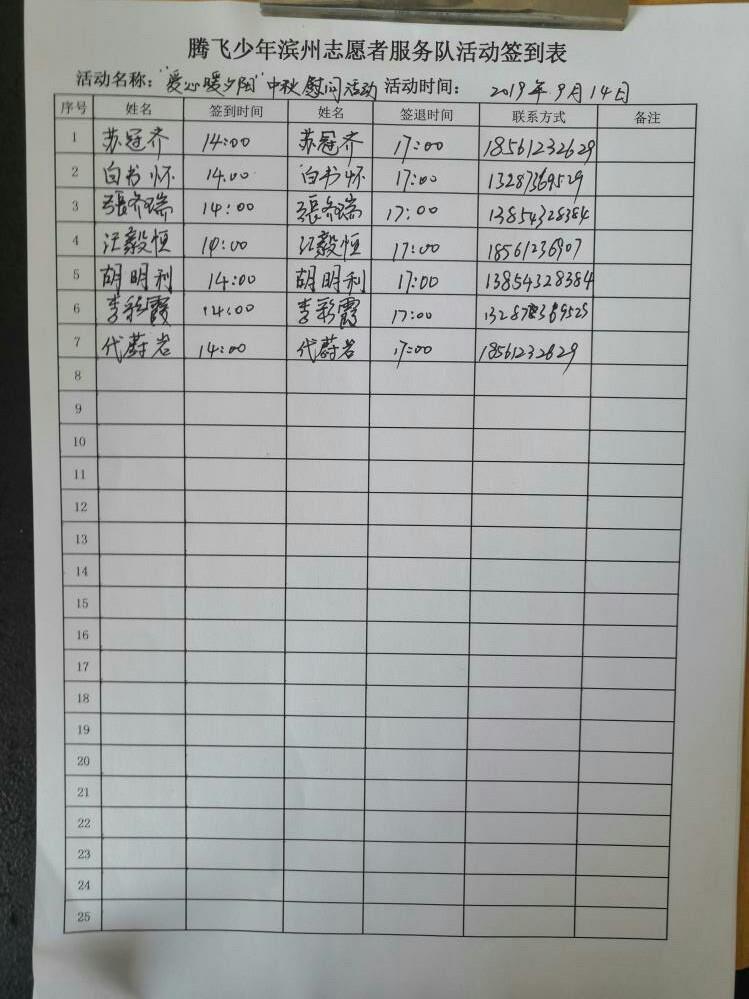 腾飞少年滨州志愿者服务队活动签到表
活动名称：“爱心暖夕阳”中秋慰问活动 活动时间： 2019年9月14日
序号 姓名 签到时间 姓名 签退时间 联系方式 备注
1 苏冠齐 14:00 苏冠齐 17:00 18561232629
2 白书怀 14:00 白书怀 17:00 13287369529
3 張齐瑞 14:00 張齐瑞 17:00 13854328384
4 江毅恒 14:00 江毅恒 17:00 18561236907
5 胡明利 14:00 胡明利 17:00 13854328384
6 李彩霞 14:00 李彩霞 17:00
7 代蔚岩 14:00 代蔚岩 17:00 18561232629
8
9
10
11
12
13
14
15
16
17
18
19
20
21
22
23
24
25